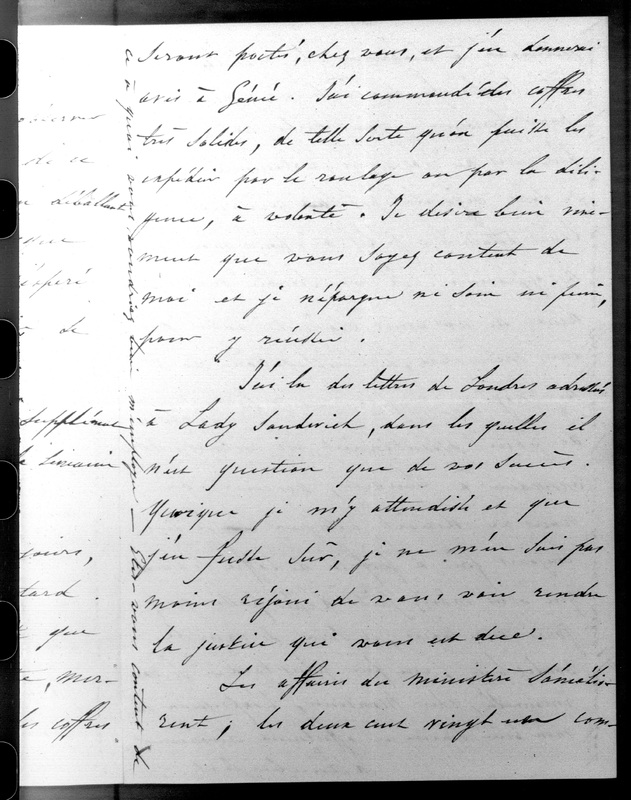 seront portés, chez vous, et j'en donnerai
avis à Génie. J'ai commandé des coffres
très solides, de telle sorte qu'on puisse les
expédier par le roulage ou par la dili-
gence, à volonté. Je désire bien vive-
ment que vous soyez content de
moi et je n'épargne ni soin ni peine,
pour y réussir.
J'ai lu des lettres de Londres adressées
à Lady Sandwich, dans les quelles il
n'est question que de vos succès.
Quoique je m'y attendisse et que
j'en fusse sûr, je ne m'en suis pas
moins réjoui de vous voir rendre
la justice qui vous est due.
Les affaires du ministère s'amélio-
rent; les deux cent vingt un com-
ce à quoi vous voudriez bien m'employer — Etes-vous content de
de ce
déballant
espéré
de
Supplément
le
jours,
tard
que
mer-
les coffres